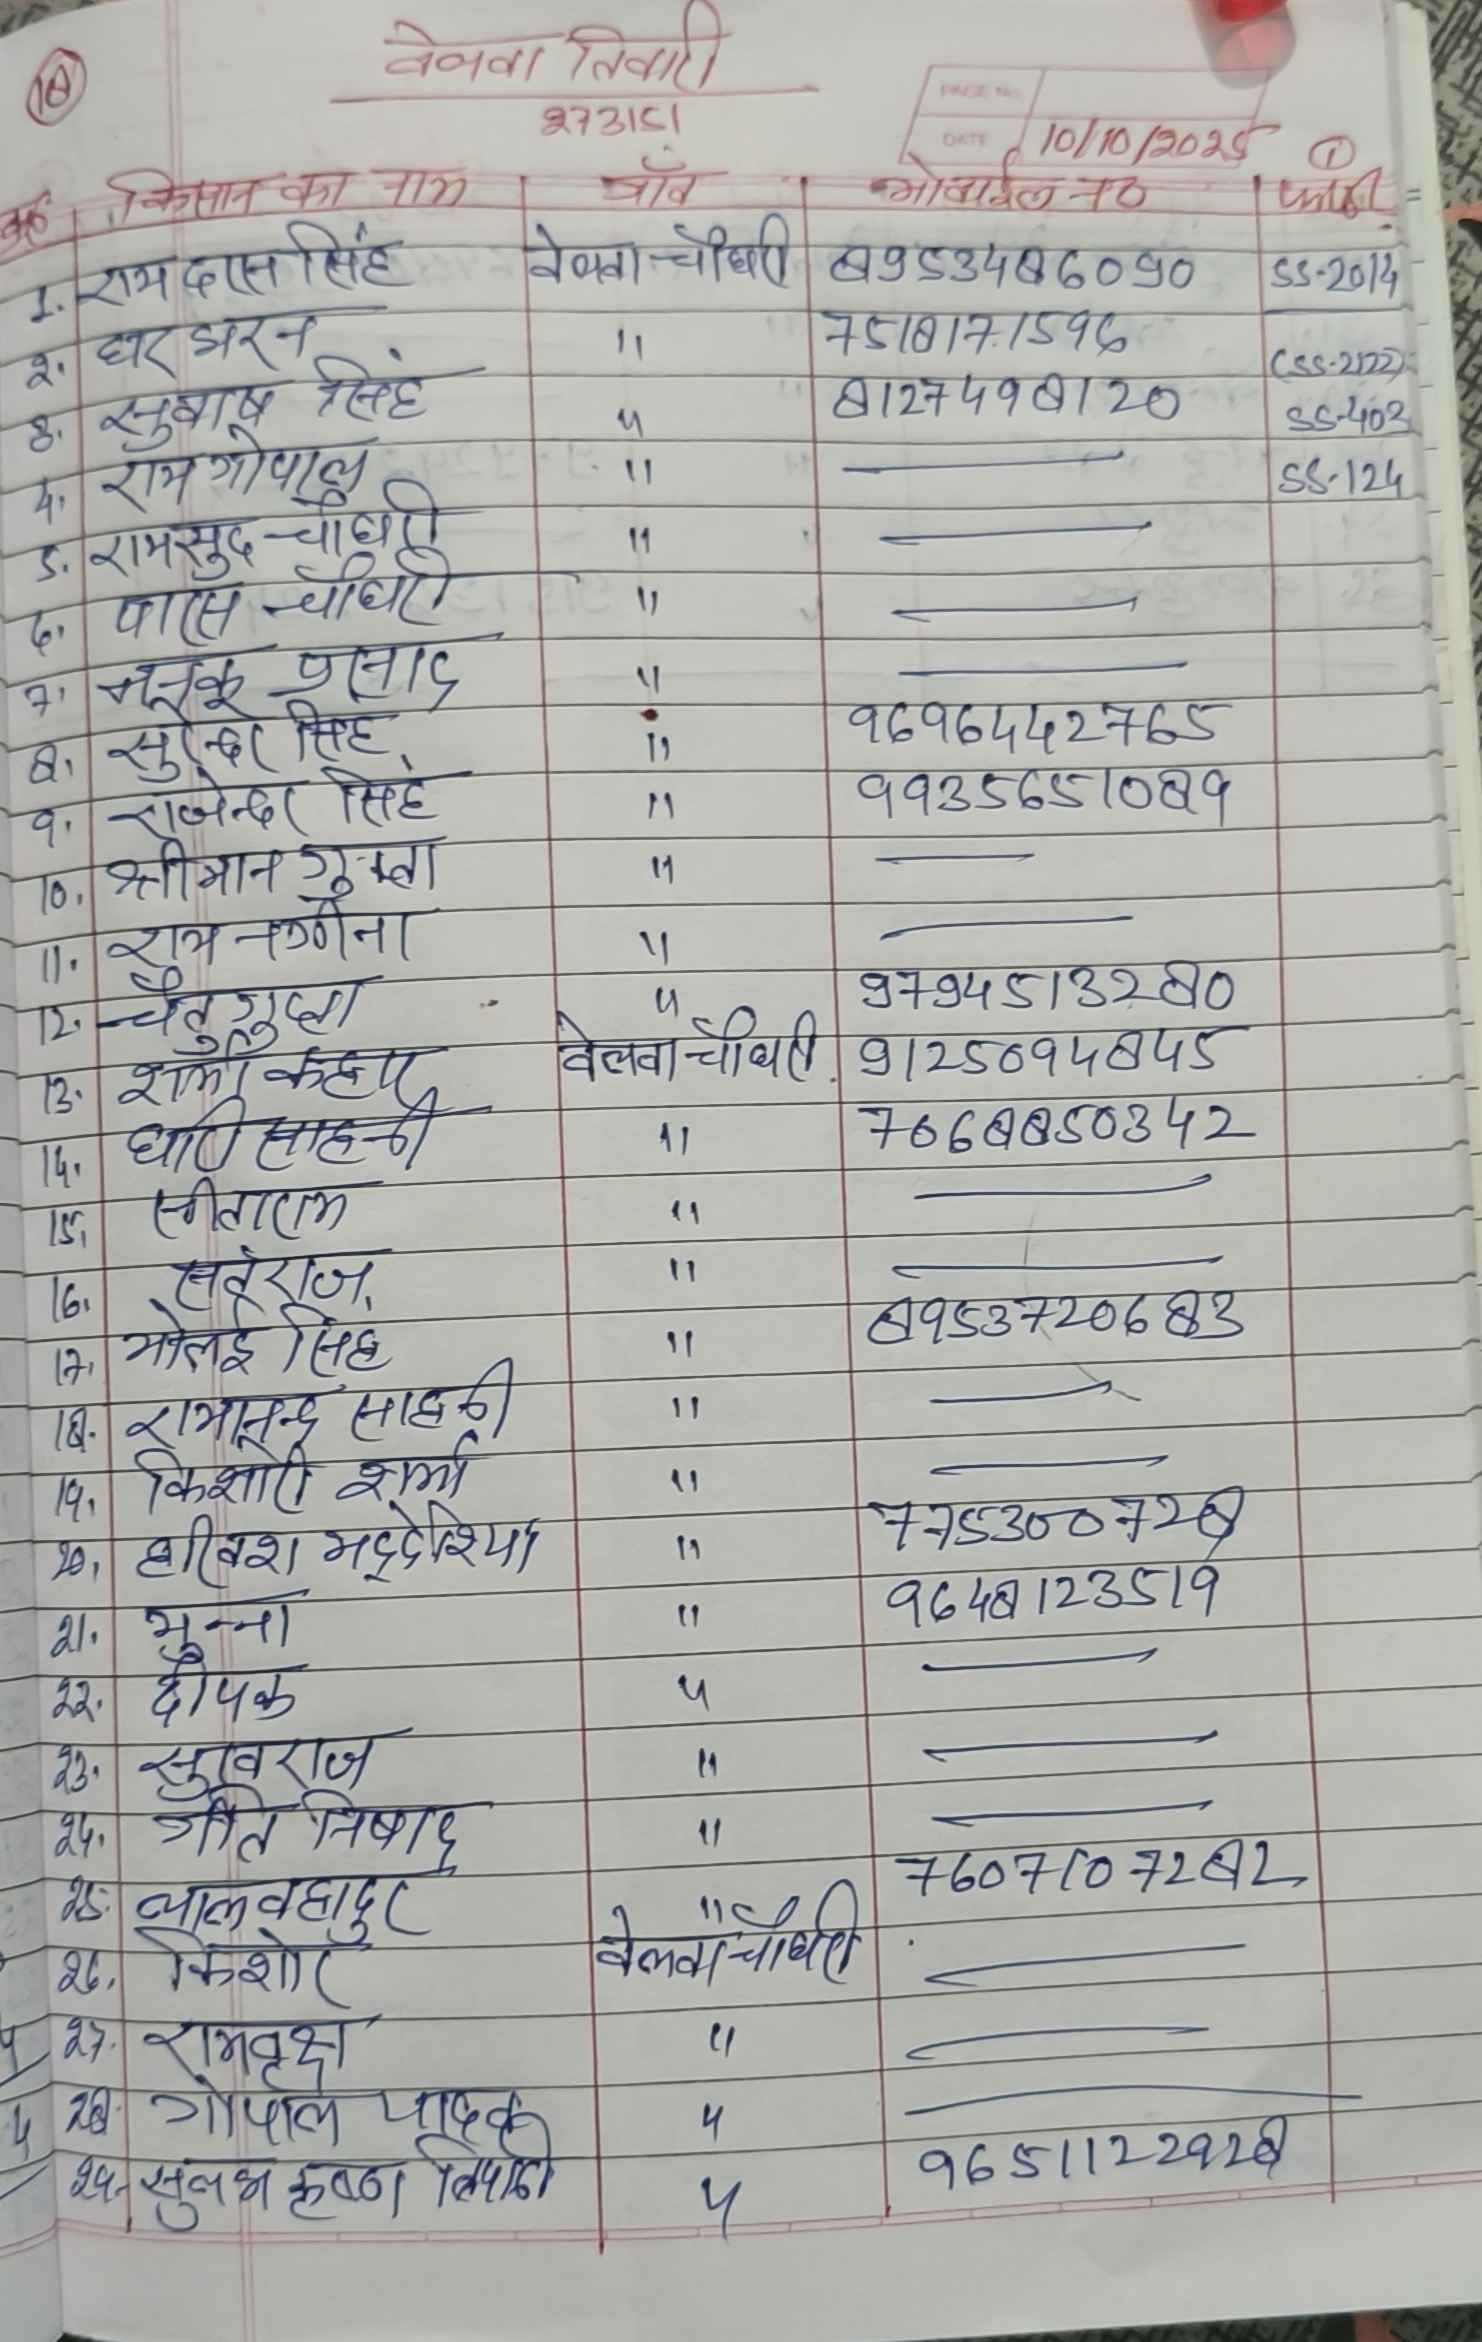 18
बेलवा तिवारी
273151
PAGE NO.
DATE 10/10/2025 1
क्र० किसान का नाम गाँव मोबाईल न०
1. रामदास सिंह बेलवा चौधरी 8953486090 SS-2014
2. हर झरन 11 7518171596 (SS-2122)
3. सुबाष सिंह 11 8127498120 SS-402
4. राम गोपाल 11 — SS-124
5. रामसुद चौधरी 11 —
6. पारस चौधरी 11 —
7. प्रसाद 11 —
8. सुरेन्दर सिंह 11 9696442765
9. राजेन्दर सिंह 11 9935651089
10. श्रीमान गुप्ता 11 —
11. राम नगीना 11 —
12. चैतु गुप्ता 11 9794513280
13. शर्मा बेलवा चौधरी 9125094845
14. घारी साहनी 11 7068850342
15. सीताराम 11 —
16. सतराज 11 —
17. भोलई सिंह 11 8953720683
18. रामानन्द साहनी 11 —
19. किशोरी शर्मा 11 —
20. हरिवंश मद्देशिया 11 775300728
21. मुन्ना 11 9648123519
22. दीपक 11 —
23. सुखराज 11 —
24. निषाद 11 —
25. लालबहादुर 11 7607107282
26. किशोर बेलवा चौधरी —
27. रामवृक्ष 11 —
28. गोपाल यादव 11 —
29. सुलभ कृष्ण त्रिपाठी 11 9651122928